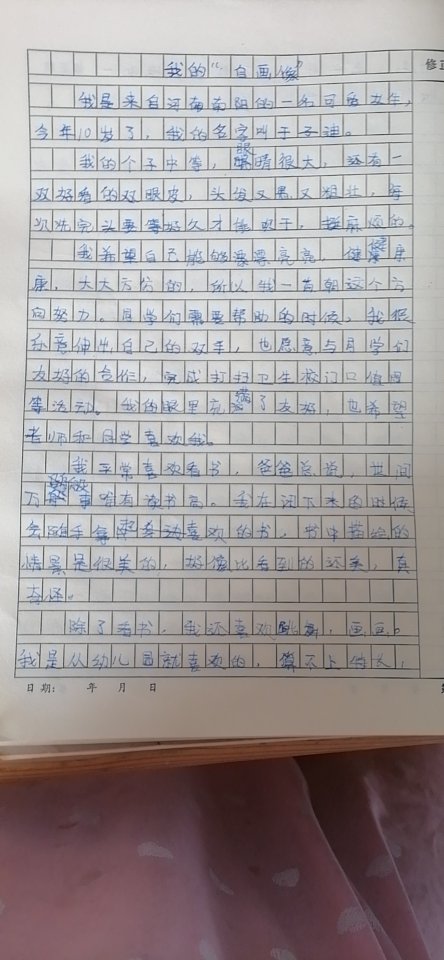 我的“自画像”
修正
我是来自河南南阳的一名可爱女生，
今年10岁了，我的名字叫于子涵。
我的个子中等，眼睛很大，还有一
双好看的双眼皮，头发又黑又粗壮，每
次洗完头要等好久才能吹干，挺麻烦的。
我希望自己能够漂漂亮亮，健健康
康，大大方方的，所以我一直朝这个方
向努力。同学们需要帮助的时候，我很
乐意伸出自己的双手，也愿意与同学们
友好的合作，完成打扫卫生校门口值周
等活动。我的眼里充满了友好，也希望
老师和同学喜欢我。
我平常喜欢看书，爸爸总说，世间
万般事唯有读书高。我在闲下来的时候
会随手拿起喜欢的书，书中描绘的
情景是很美的，好像比看到的还美，真
奇怪。
除了看书，我还喜欢跳舞，画画。
我是从幼儿园就喜欢的，算不上特长，
日期： 年 月 日